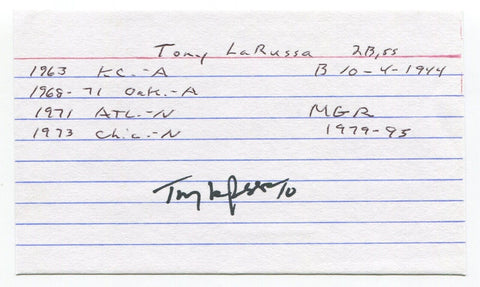 Tony LaRussa 2B,ss
1963 K.C.-A B 10-4-1944
1968-71 Oak.-A
1971 ATL.-N MGR
1973 Chic.-N 1979-95
Tony La Russa /10